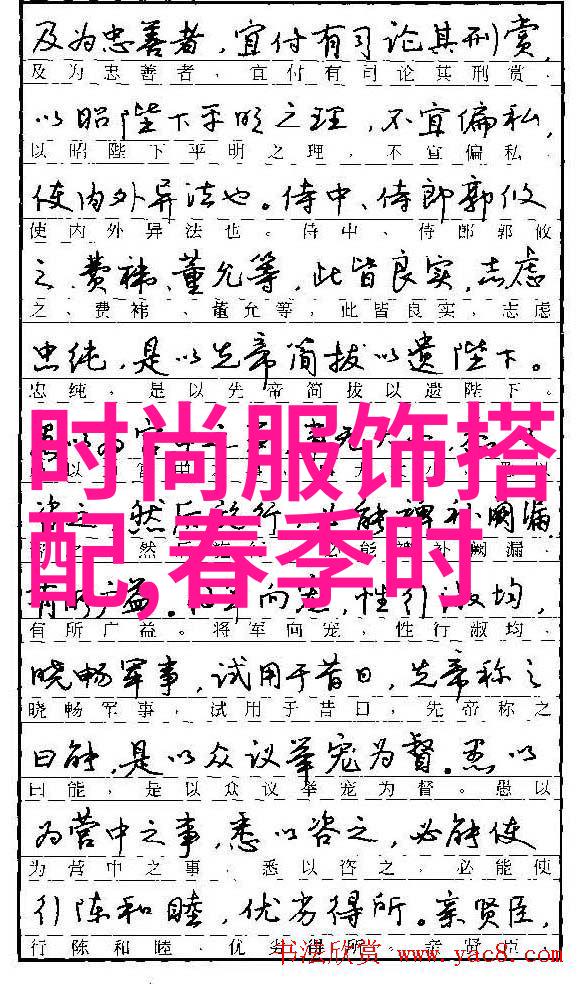 及为忠善者，宜付有司论其刑赏，
及为忠善者、宜付有司论其刑赏、
以昭陛下平明之理，不宜偏私，
以昭陛下平明之理、不宜偏私、
使内外异法也。侍中、侍郎郭攸
使内外异法也。侍中、侍郎郭攸
之、费袆、董允等，此皆良实，志虑
之、费袆、董允等、此皆良实、志虑
忠纯，是以先帝简拔以遗陛下。
忠纯、是以先帝简拔以遗陛下。
时尚服饰搭
配,春季时
然后施行，必能裨补阙漏
然 能裨补阙漏、
有所广益。将军向宠，性行淑均，
有所广益。将军向宠、性行淑均、
晓畅军事，试用于昔日，先帝称之
晓畅军事、试用于昔日、先帝称之
曰能，是以众议举宠为督。愚以
曰能、是以众议举宠为督。愚以
为营中之事，悉以咨之，必能使
为营中之事、悉以咨之、必能使
行陈和睦，优劣得所。亲贤臣，
行陈和睦、优劣得所。亲贤臣、
书法欣赏 www.yac8.com